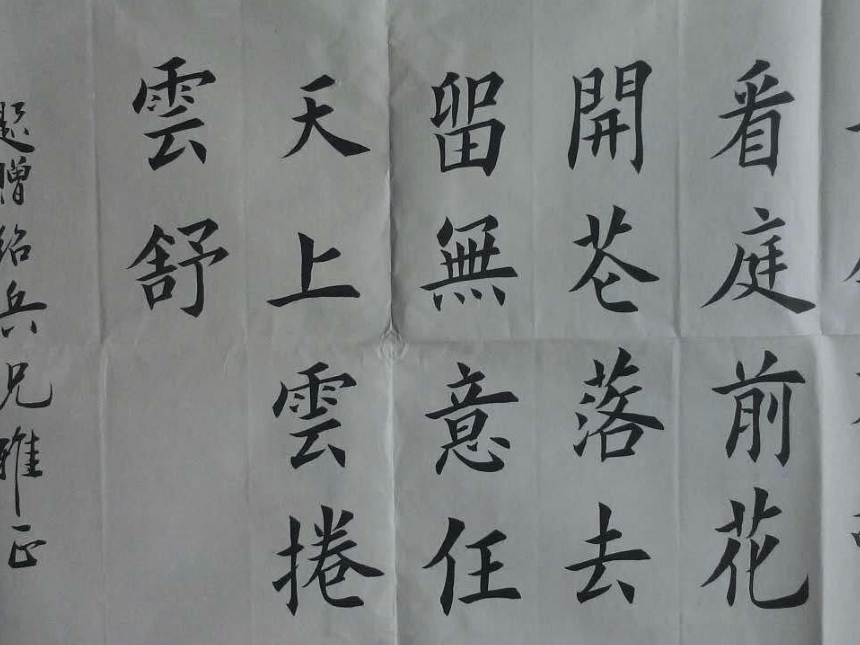 看庭前花
開芲落去
留無意任
天上雲捲
雲舒
題贈紹兵兄雅正